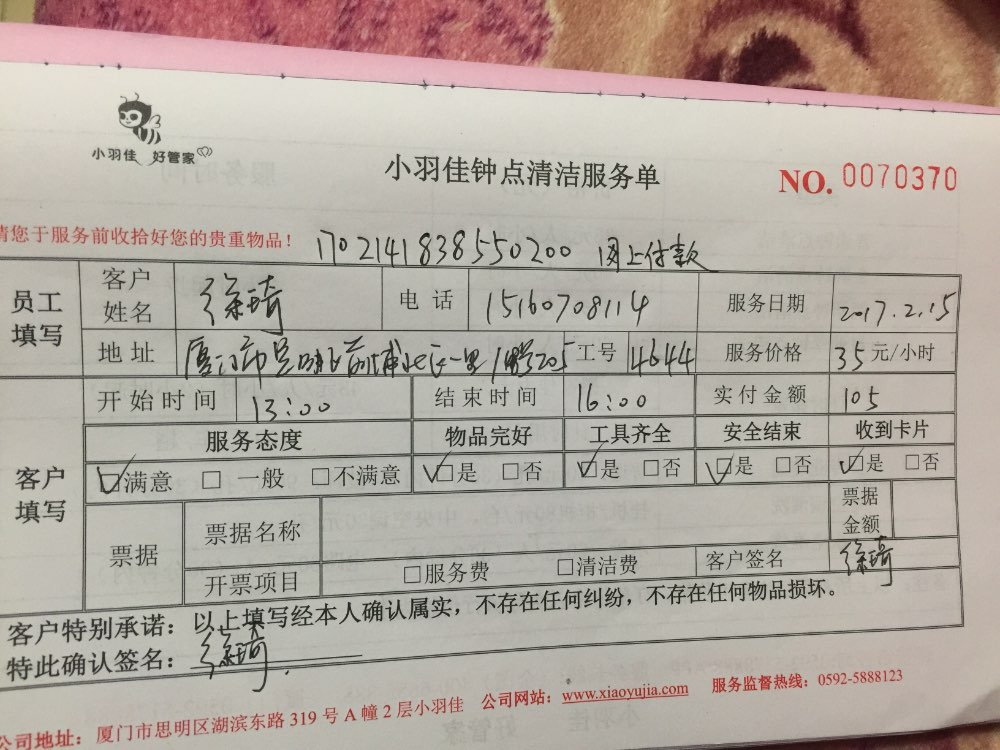 小羽佳 好管家
小羽佳钟点清洁服务单
NO. 0070370
请您于服务前收拾好您的贵重物品！
1702141838550200 网上付款
员工填写 客户姓名 徐琦 电话 15160708114 服务日期 2017.2.15
地址 厦门市思明区前埔北区一里 205 工号 4644 服务价格 35元/小时
客户填写 开始时间 13:00 结束时间 16:00 实付金额 105
服务态度 物品完好 工具齐全 安全结束 收到卡片
☑满意 □一般 □不满意 ☑是 □否 ☑是 □否 ☑是 □否 ☑是 □否
票据 票据名称 票据金额
开票项目 □服务费 □清洁费 客户签名 徐琦
客户特别承诺：以上填写经本人确认属实，不存在任何纠纷，不存在任何物品损坏。
特此确认签名：徐琦.
公司地址：厦门市思明区湖滨东路319号A幢2层小羽佳 公司网站：www.xiaoyujia.com 服务监督热线：0592-5888123